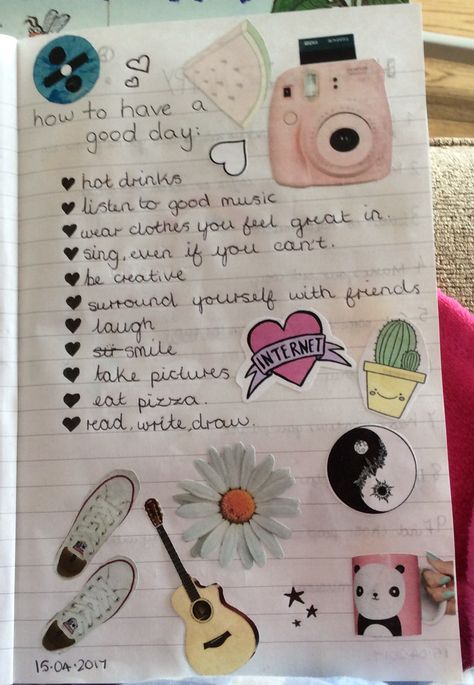 how to have a
good day:
♥ hot drinks
♥ listen to good music
♥ wear clothes you feel great in.
♥ sing, even if you can't.
♥ be creative
♥ surround yourself with friends
♥ laugh
♥ str smile
♥ take pictures
♥ eat pizza.
♥ read, write, draw.
INTERNET
15.04.2017